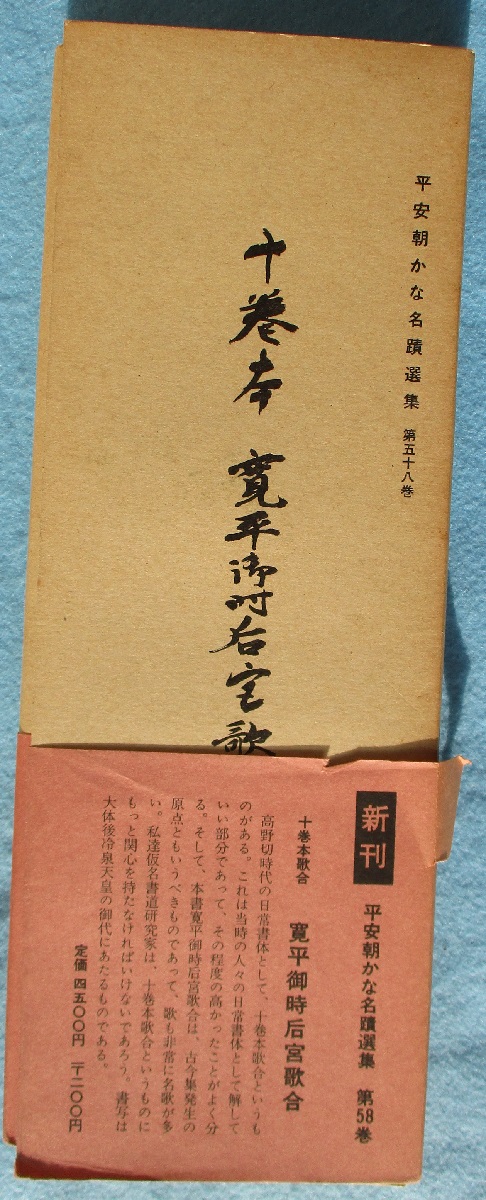 平安朝かな名蹟選集 第五十八巻
十巻本 寛平御時后宮歌
新刊 平安朝かな名蹟選集 第58巻
十巻本歌合 寛平御時后宮歌合
高野切時代の日常書体として、十巻本歌合というも
のがある。これは当時の人々の日常書体として解して
いい部分であって、その程度の高かったことがよく分
る。そして、本書寛平御時后宮歌合は、古今集発生の
原点ともいうべきものであって、歌も非常に名歌が多
い。私達仮名書道研究家は、十巻本歌合というものに
もっと関心を持たなければいけないであろう。書写は
大体後冷泉天皇の御代にあたるものである。
定価 四五〇〇円 〒二〇〇円